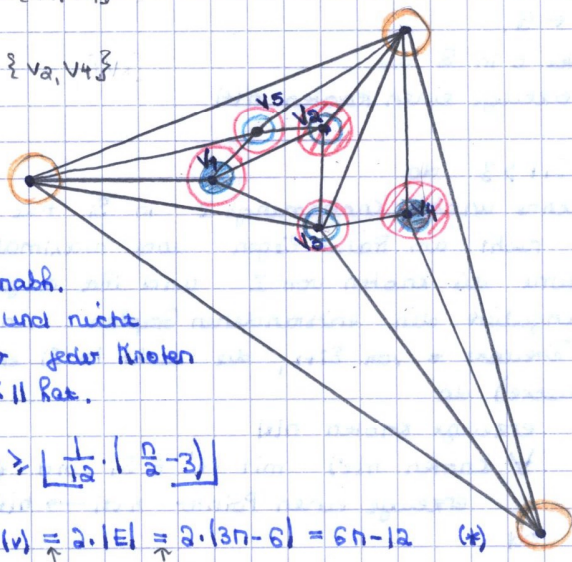 { V2, V4 }
V5
V2
V1
V4
V3
nabh.
und nicht
jeder Knoten
11 hat.
≥ ⌊ 1/12 · ( n/2 - 3 ) ⌋
(v) = 2·|E| = 2·(3n-6) = 6n-12 (*)
↑ ↑